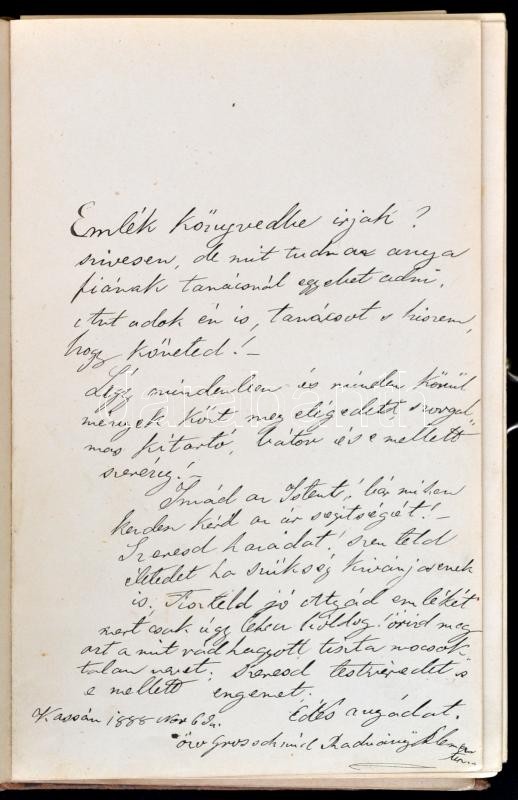 Emlék könyvedbe irjak?
szivesen, de mit tudna az anya
fiának tanácsnál egyebet adni,
itt adok én is, tanácsot s hiszem,
hogy követed! –
Légy mindenben és minden körül
mények közt, meg elégedett szorgal"
mas kitartó, bátor és e mellett
szerény! –
Imád az Istent! bár miben
kezden kérd az ő segitségét! –
Szeresd hazádat! szenteld
életedet ha szükség kivánja ennek
is. Tiszteld jó Atyád emlékét
mert csak úgy lehetsz boldog! őrizd meg
azt a mit rád hagyott tiszta mocsok"
talan nevet. Szeresd testvéredet is
e mellett engemet.
Édes anyádat.
Kassán 1888 Nov 6 án.
özv Grosschmid Radványi Klemen